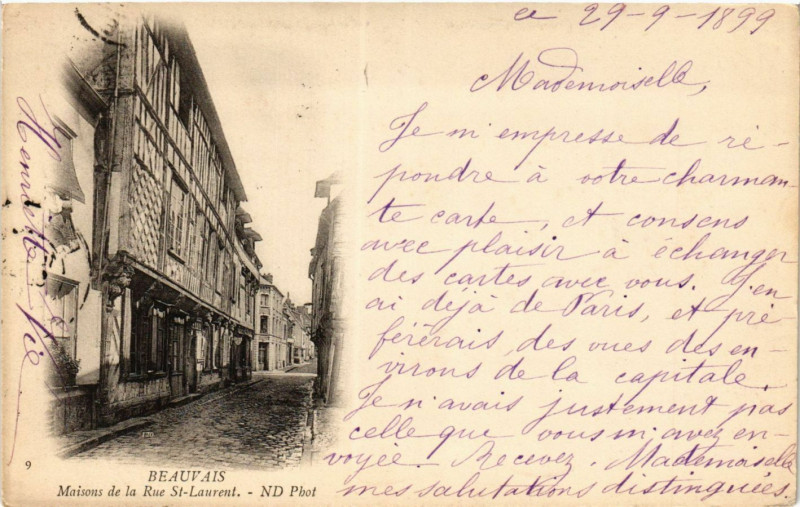 ce 29-9-1899
Mademoiselle,
Je m'empresse de ré-
pondre à votre charman-
te carte, et consens
avec plaisir à échanger
des cartes avec vous. J'en
ai déjà de Paris, et pré-
férerais des vues des en-
virons de la capitale.
Je n'avais justement pas
celle que vous m'avez en-
voyée. Recevez, Mademoiselle
mes salutations distinguées.
Henriette
9
BEAUVAIS
Maisons de la Rue St-Laurent. - ND Phot